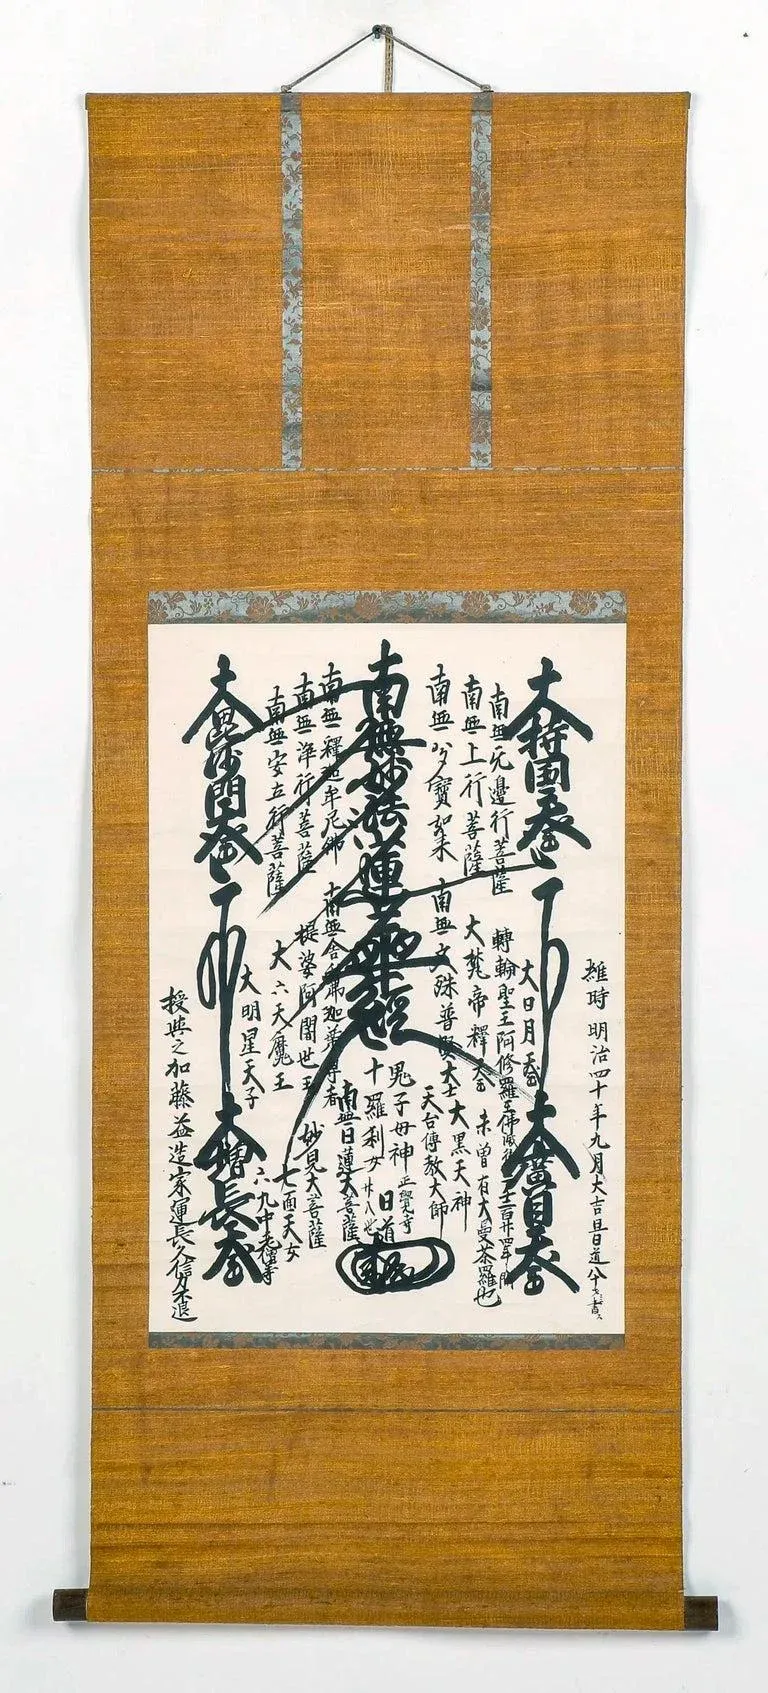 維時明治四十年九月大吉旦日道
大持国天
大廣目天
大日月天
南無无邊行菩薩
轉輪聖王阿修羅王
南無上行菩薩
大梵帝釋天
未曽有大曼荼羅也
南無分寶如来
南無文殊普賢大士
大黒天神
天台傳教大師
南無妙法蓮華経
鬼子母神
正覺寺
十羅刹女
廿八世
日道
南無釋迦牟尼佛
南無舎利弗迦葉尊者
南無日蓮大菩薩
南無浄行菩薩
提婆阿闍世王
妙見大菩薩
南無安立行菩薩
大六天魔王
七面天女
大明星天子
六九中老僧等
大毘沙門天
大増長天
授與之加藤益造家運長久信力不退